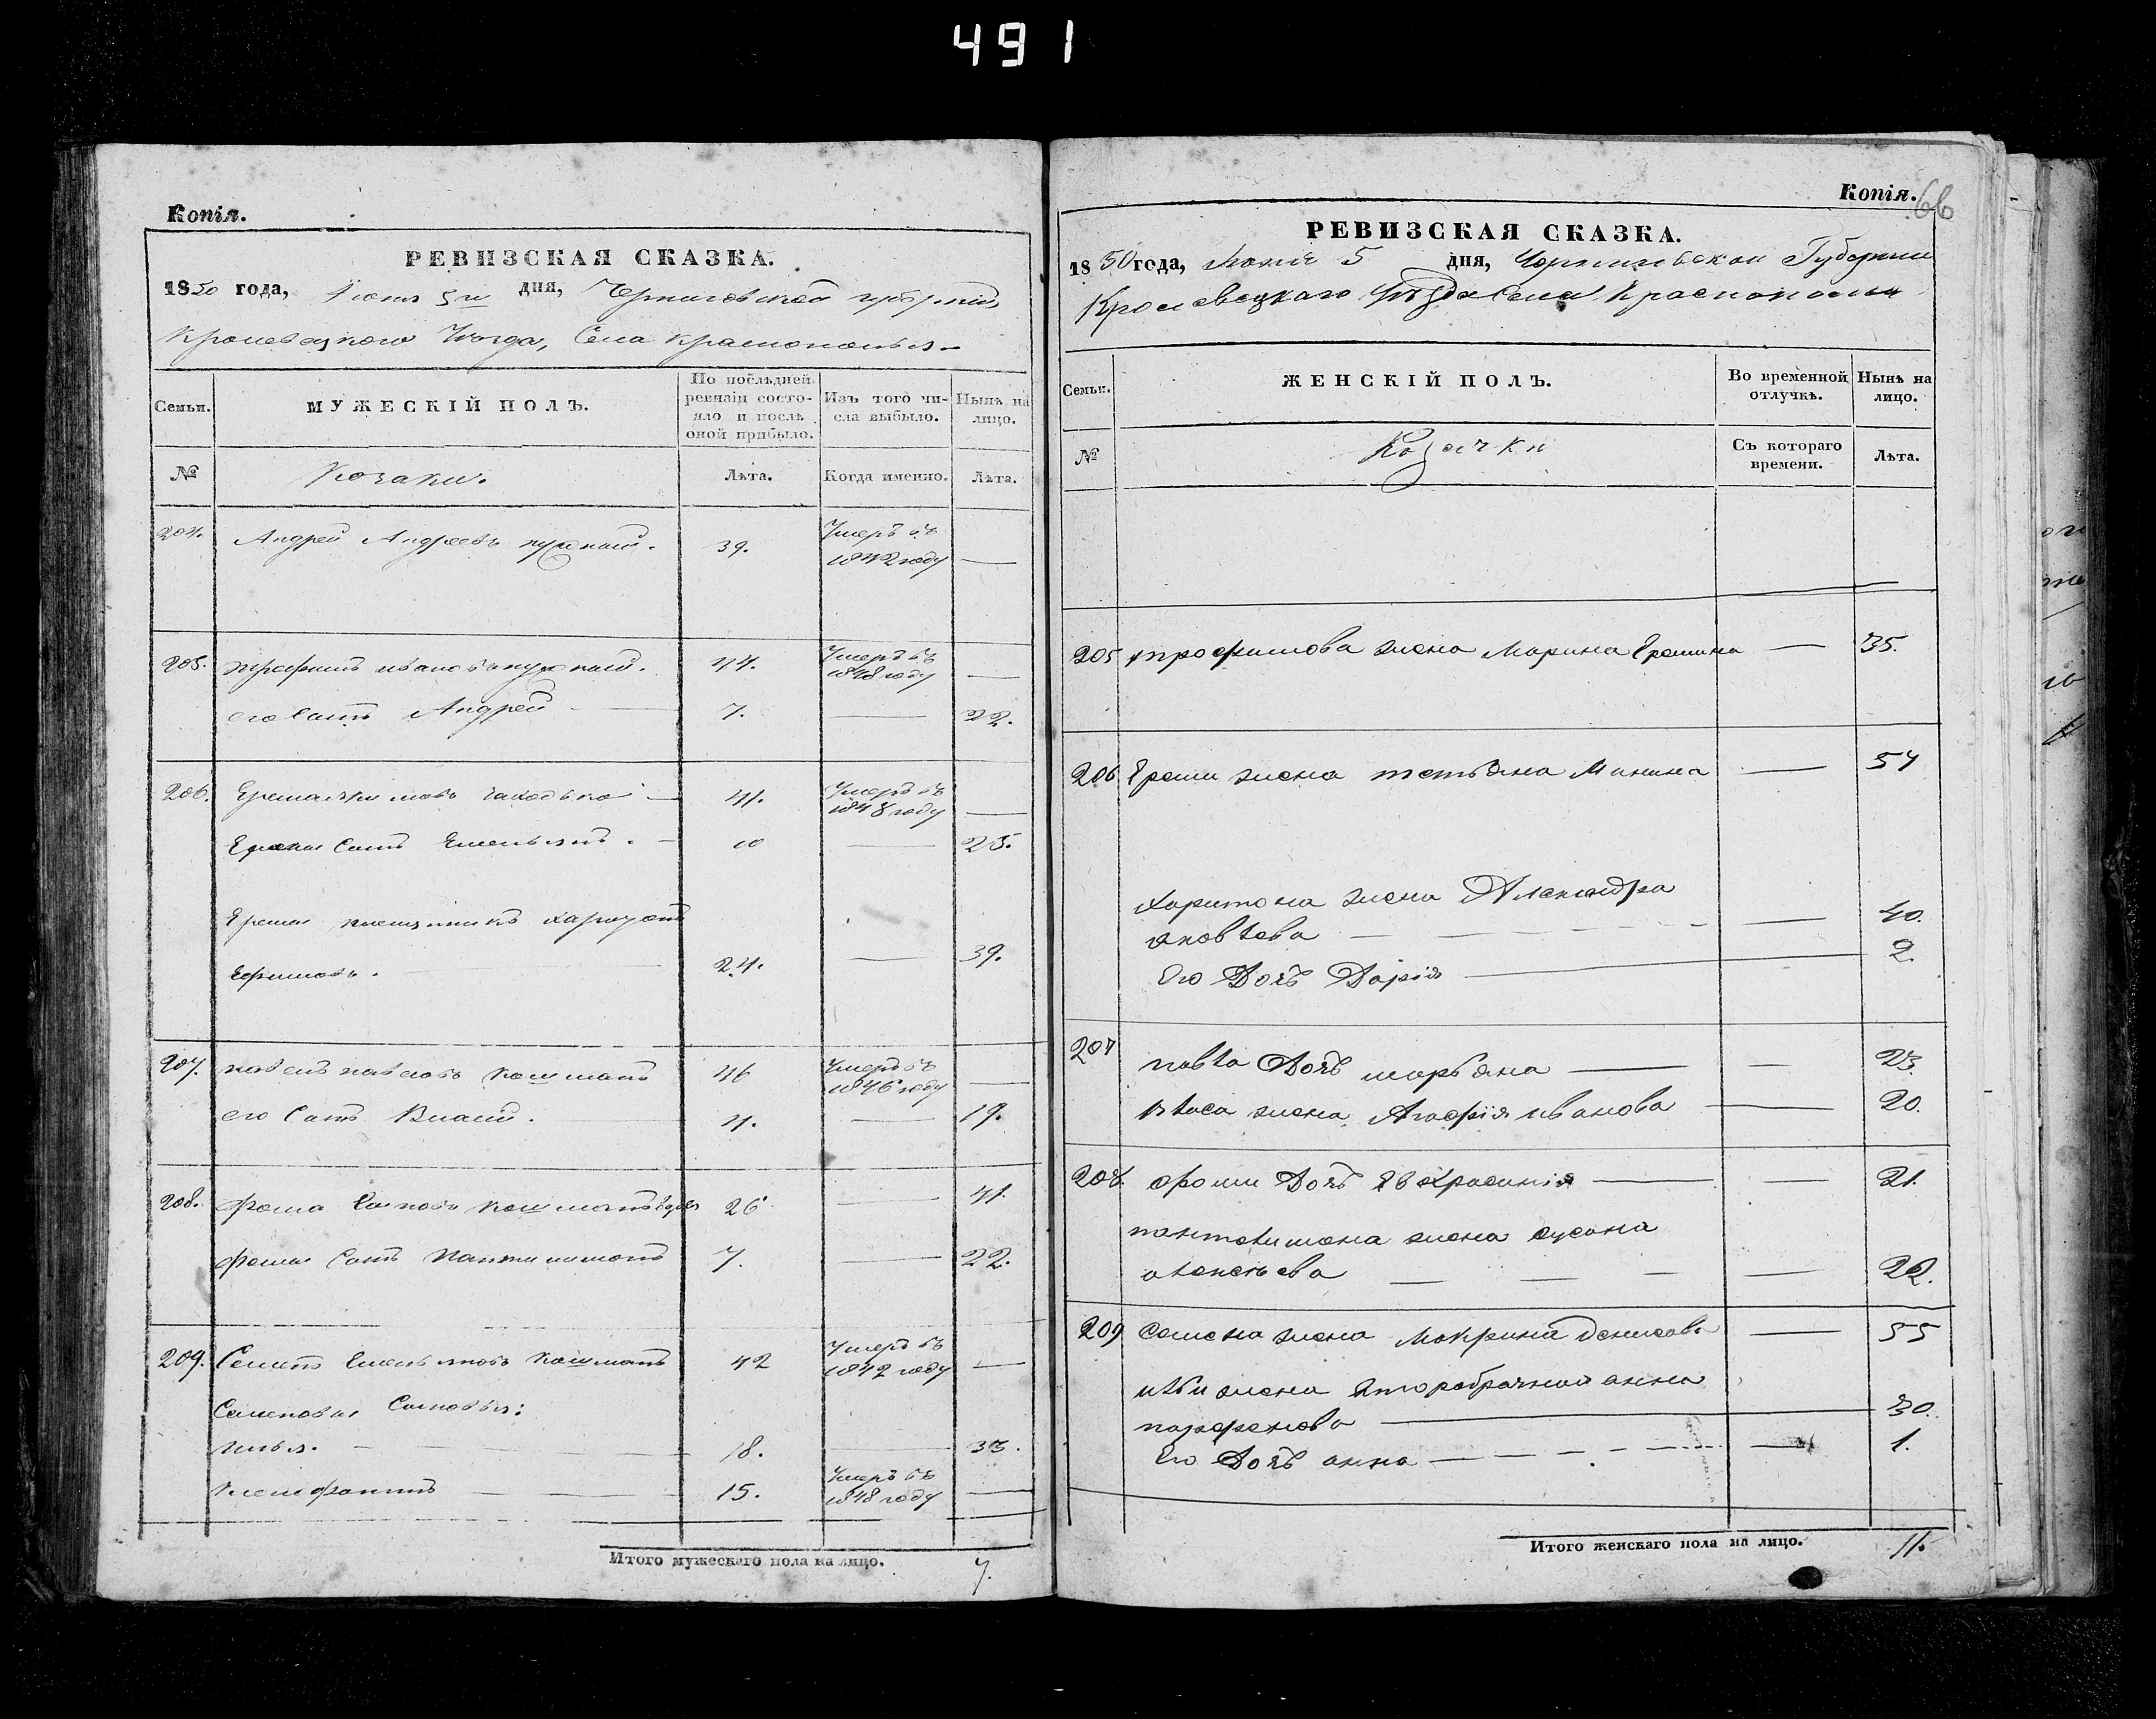 491
Копія.
РЕВИЗСКАЯ СКАЗКА.
1850 года, Июня 5го дня, Черниговской губерніи,
Кролевецкого Уезда, Села Краснополья.
Семьи.
МУЖЕСКІЙ ПОЛЪ.
По послѣдней ревизіи состояло и послѣ оной прибыло.
Изъ того числа выбыло.
Нынѣ на лицо.
№
Козаки.
Лѣта.
Когда именно.
Лѣта.
204. Андрей Андреевъ 39. Умеръ въ 1842 году —
205. Трофимъ Ивановъ 44. Умеръ въ 1848 году —
его Сынъ Андрей — 7. — 22.
206. Ерема 41. Умеръ въ 1848 году —
Еремы Сынъ Емельянъ. — 10 — 25.
Еремы племянникъ Харитонъ
Ефимовъ. 24. — 39.
207. Павелъ Павловъ Кошманъ 46 Умеръ въ 1846 году —
его Сынъ Власъ. 4. — 19.
208. Фома Кошманъ 26. — 41
Фомы Сынъ Пантилимонъ 7. — 22.
209. Семенъ Емельяновъ Кошманъ 42 Умеръ въ 1842 году —
Семеновы Сыновья:
Илья. — 18. — 33.
Ксенофонтъ — 15. Умеръ въ 1848 году —
Итого мужескаго пола на лицо. 7.
Копія. 66
РЕВИЗСКАЯ СКАЗКА.
1850 года, Июня 5 дня, Черниговской Губерніи
Кролевецкаго Уѣзда Села Краснополья
Семьи.
ЖЕНСКІЙ ПОЛЪ.
Во временной отлучкѣ.
Нынѣ на лицо.
№
Козачки
Съ котораго времени.
Лѣта.
205 Трофимова жена Марина Еремина — 35.
206 Еремы жена Татьяна Минина — 54
Харитона жена Александра
Яковлева — — 40.
Его Дочь Дарія — 2.
207 Павла Дочь Марьяна — — 23.
Власа жена Агафія Иванова — 20.
208. Фомы Дочь Евфросинія — — 21.
Пантелимона жена Сусана
Алексѣева — — — — 22.
209 Семена жена Макрина Денисова — 55
Ильи жена второбрачная Анна
Парфенова — 30.
Его Дочь Анна — — 1.
Итого женскаго пола на лицо. 11.